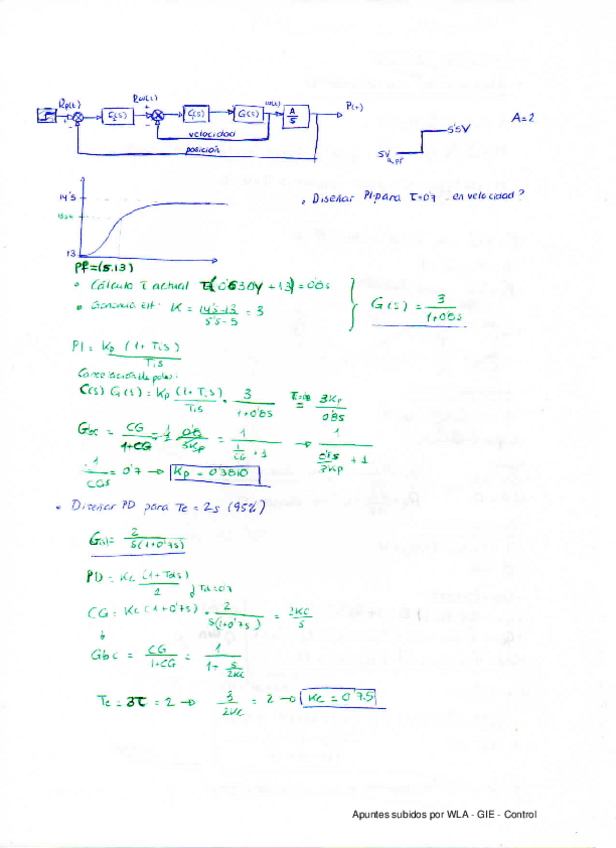 Rp(t) Rω(t) ω(t) P(t)
C₂(s) C₁(s) G(s) A/s
A=2
velocidad
posición
5'5V
5V
14'5
• Diseñar PI para τ=0'7 en velocidad?
13
PF=(5,13)
• Cálculo τ actual
• Ganancia est. K = (14'5-13)/(5'5-5) = 3
G(s) = 3/(1+0'8s)
PI: Kp (1+Tis)/Tis
Cancelación de polos:
C(s) G(s) = Kp (1+Tis)/Tis · 3/(1+0'8s) = 3Kp/0'8s
Gbc = CG/(1+CG) = 1/(1/CG + 1) → 1/(0'8s/3Kp + 1)
= 0'7 → Kp = 0'3810
• Diseñar PD para Te = 2s (95%)
G(s)= 2/(s(1+0'7s))
PD = Kc (1+Tds)/1 Td=0'7
CG = Kc (1+0'7s) · 2/(s(1+0'7s)) = 2Kc/s
Gbc = CG/(1+CG) = 1/(1+ s/2Kc)
Te = 3τ = 2 → 3/2Kc = 2 → Kc = 0'75
Apuntes subidos por WLA - GIE - Control